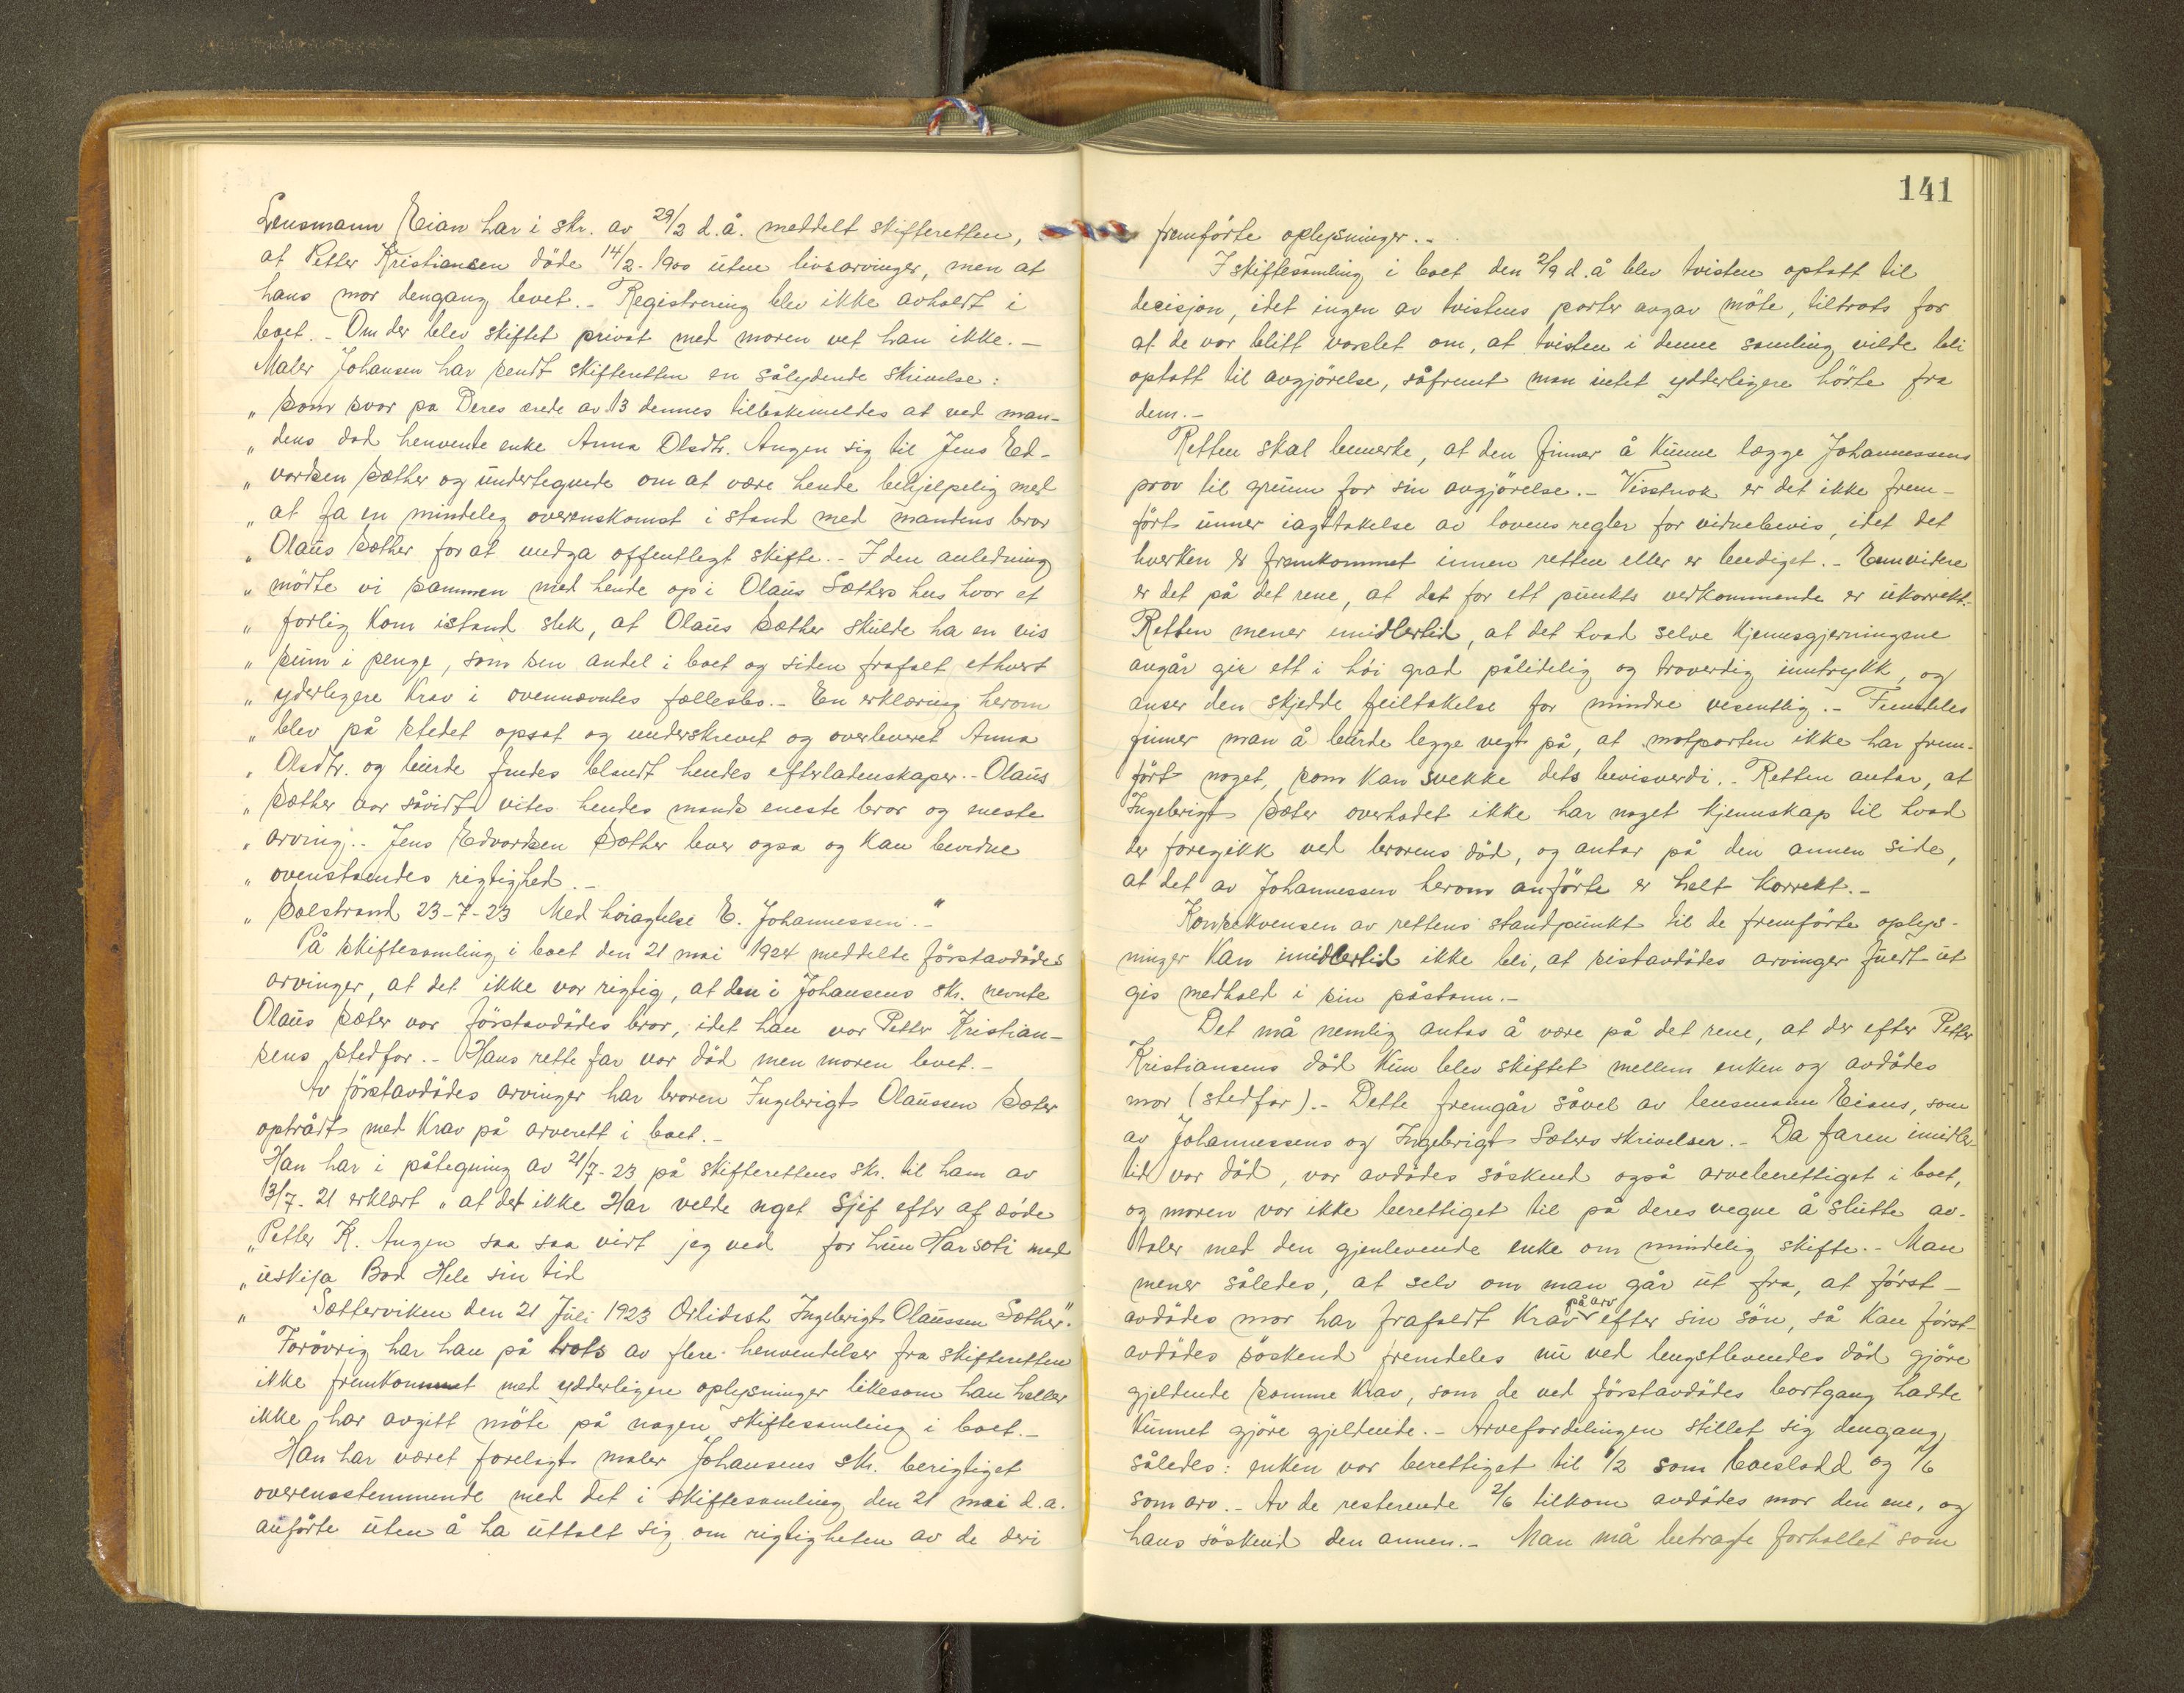 Lensmann Eian har i skr. av 29/2 d.å. meddelt skifteretten,
at Petter Kristiansen döde 14/2-1900 uten livsarvinger, men at
hans mor dengang levet.- Registrering blev ikke avholdt i
boet.- Om der blev skiftet privat med moren vet han ikke.-
Maler Johansen har sendt skifteretten en sålydende skrivelse:
"Som svar pa Deres ærede av 13 dennes tilbakemeldes at ved man-
"dens död henvente enke Anna Olsdtr. Angen sig til Jens Ed-
"vardsen Sæther og undertegnede om at være hende behjelpelig med
"at fa en mindeleg overenskomst i stand med mandens bror
"Olaus Sæther for at undga offentlegt skifte.- I den anledning
"mödte vi sammen med hende op i Olaus Sæthers hus hvor et
"forlig kom istand slik, at Olaus Sæther skulde ha en vis
"sum i penge, som sin andel i boet og siden frafalt ethvert
"yderligere krav i ovennævntes fællesbo.- En erklæring herom
"blev på stedet opsat og underskrevet og overleveret Anna
"Olsdtr. og burde findes blandt hendes efterladenskaper.- Olaus
"Sæther var såvidt vites hendes mands eneste bror og neste
"arving.- Jens Edvardsen Sæther lever ogsa og kan bevidne
"ovenstaendes rigtighed.-
"Solstrand 23-7-23 Med höiagtelse E. Johannessen.-"
På skiftesamling i boet den 21 mai 1924 meddelte förstavdödes
arvinger, at det ikke var rigtig, at den i Johansens skr. nevnte
Olaus Sæter var förstavdödes bror, idet han var Petter Kristian-
sens stedfar.- Hans rette far var död men moren levet.-
Av förstavdödes arvinger har broren Ingebrigt Olaussen Sæter
optrådt med krav på arverett i boet.-
Han har i påtegning av 21/7-23 på skifterettens skr. til ham av
13/7-21 erklært "at det ikke Har velde nget Sjif efter af döde
"Petter K. Angen saa saa virt jeg ved for hun Har soti med
"uskifa Bod Hele sin tid
" Sætterviken den 21 Juli 1923 Ærlidest Ingebrigt Olaussen Sæther".
Forövrig har han på trots av flere henvendelser fra skifteretten
ikke fremkommet med ydderligere oplysninger likesom han heller
ikke har avgitt möte på nogen skiftesamling i boet.-
Han har været forelagt maler Johansens skr. berigtiget
overensstemmende med det i skiftesamling den 21 mai d.a.
anförte uten å ha uttalt sig om rigtigheten av de deri
141
fremförte oplysninger.-
I skiftesamling i boet den 2/9 d.å blev tvisten optatt til
decisjon, idet ingen av tvistens parter avgav möte, tiltrots for
at de var blitt varslet om, at tvisten i denne samling vilde bli
optatt til avgjörelse, såfremt man intet ydderligere hörte fra
dem.-
Retten skal bemerke, at den finner å kunne lægge Johannessens
prov til grunn for sin avgjörelse.- Visstnok er det ikke frem-
fört unner iagttakelse av lovens regler for vidnebevis, idet det
hverken er fremkommet innen retten eller er beediget.- Ennvidere
er det på det rene, at det for ett punkts vedkommende er ukorrekt.-
Retten mener imidlertid, at det hvad selve kjennsgjerningene
angår gir ett i höi grad pålidelig og troverdig inntrykk, og
anser den skjedde feiltakelse for mindre vesentlig.- Fremdeles
finner man å burde legge vegt på, at motparten ikke har frem-
fört noget, som kan svekke dets bevisverdi.- Retten antar, at
Ingebrigt Sæter overhodet ikke har noget kjennskap til hvad
der foregikk ved brorens död, og antar på den annen side,
at det av Johannessen herom anförte er helt korrekt.-
Konsekvensen av rettens standpunkt til de fremförte oplys-
ninger kan imidlertid ikke bli, at sistavdödes arvinger fuldt ut
gis medhold i sin påstann.-
Det må nemlig antas å være på det rene, at der efter Petter
Kristiansens död kun blev skiftet mellem enken og avdödes
mor (stedfar).- Dette fremgår såvel av lensmann Eians, som
av Johannessens og Ingebrigt Sæters skrivelser.- Da faren imidler-
tid var död, var avdödes söskend også arveberettiget i boet,
og moren var ikke berettiget til på deres vegne å slutte av-
taler med den gjenlevende enke om mindelig skifte.- Man
mener således, at selv om man går ut fra, at först-
avdödes mor har frafaldt krav på arv efter sin sön, så kan först-
avdödes söskend fremdeles nu ved lengstlevendes död gjöre
gjeldende samme krav, som de ved förstavdödes bortgang hadde
kunnet gjöre gjeldende.- Arvefordelingen stillet sig dengang
således: enken var berettiget til 1/2 som boeslodd og 1/6
som arv.- Av de resterende 2/6 tilkom avdödes mor den ene, og
hans söskend den annen.- Man må betrage forhallet som